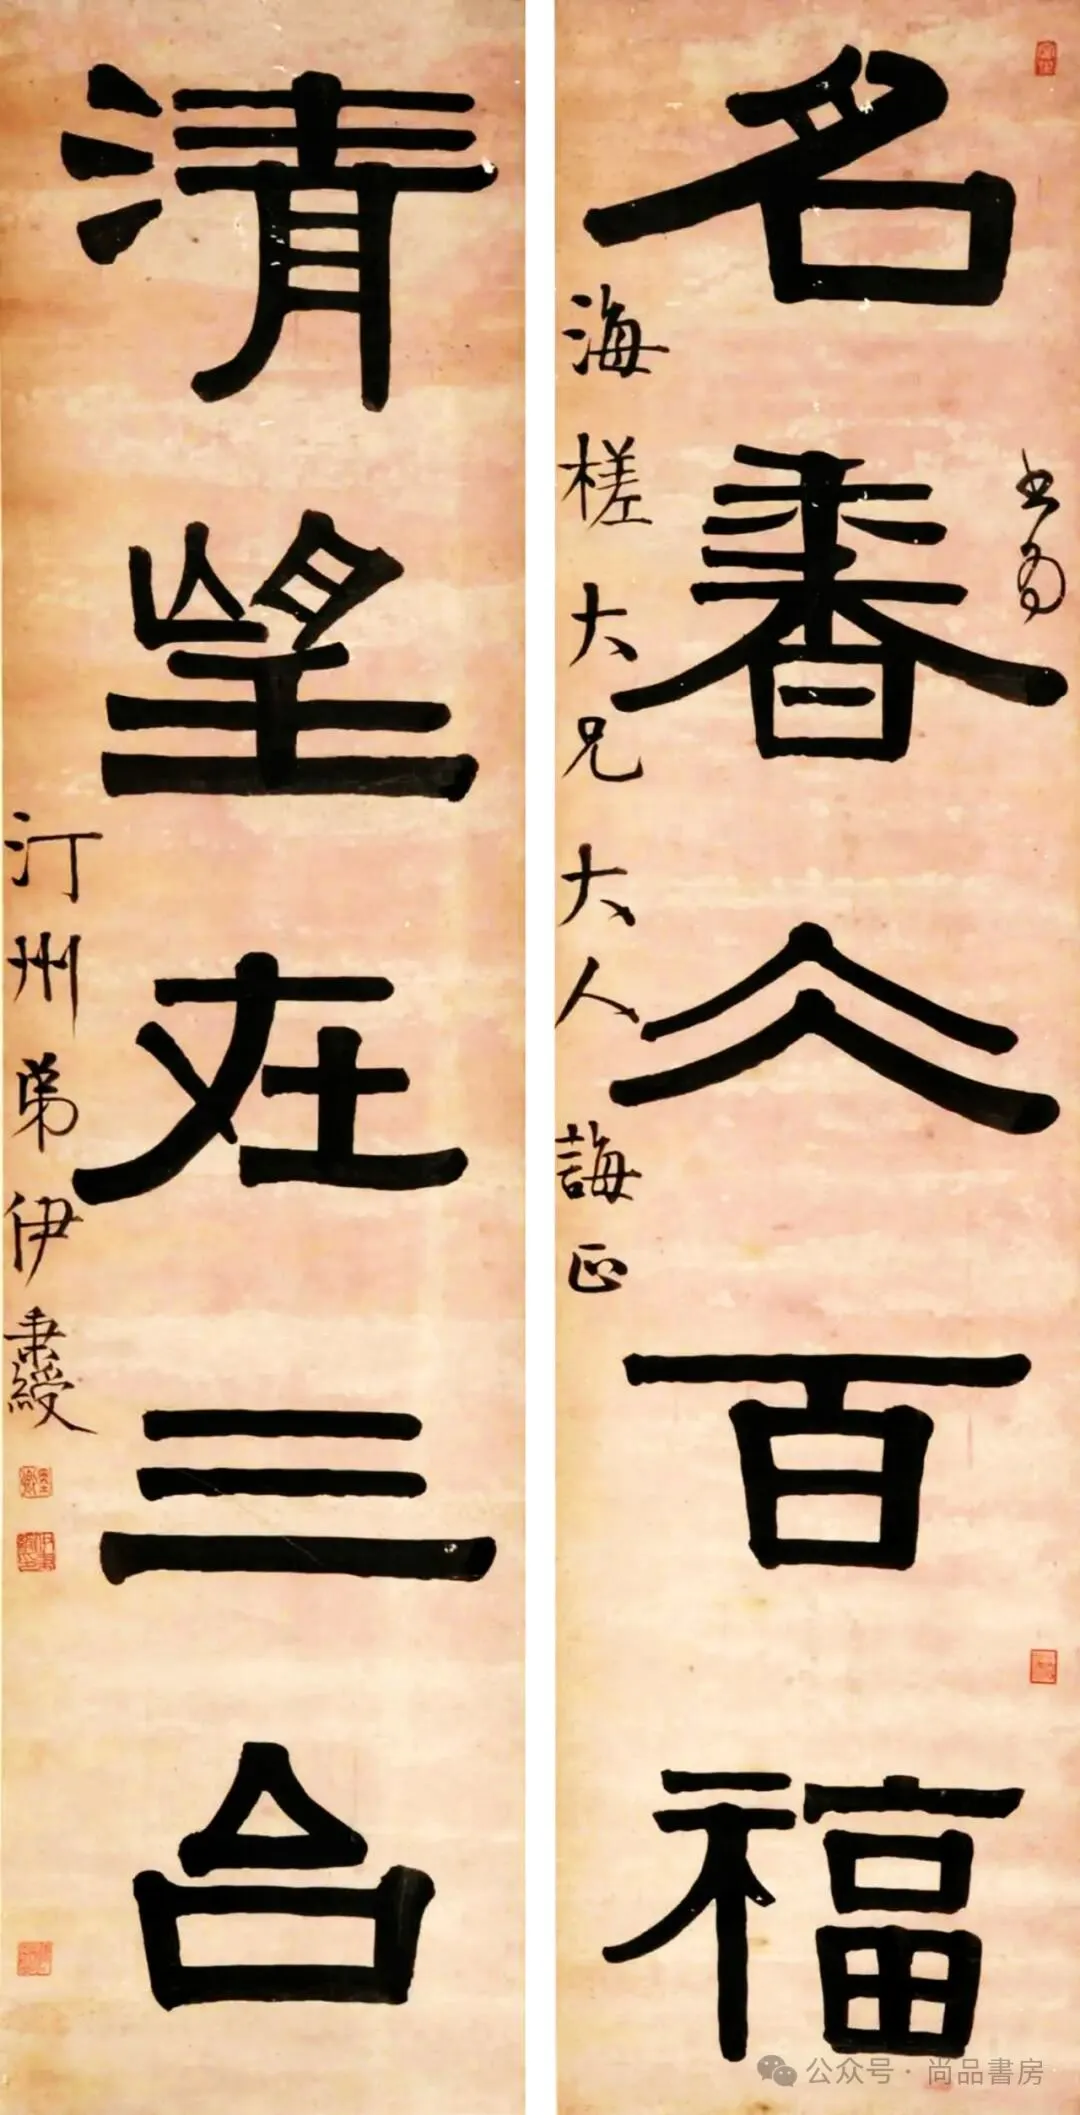 書為
名香百福
海槎大兄大人誨正
清望在三台
汀州弟伊秉綬
公众号·尚品書房